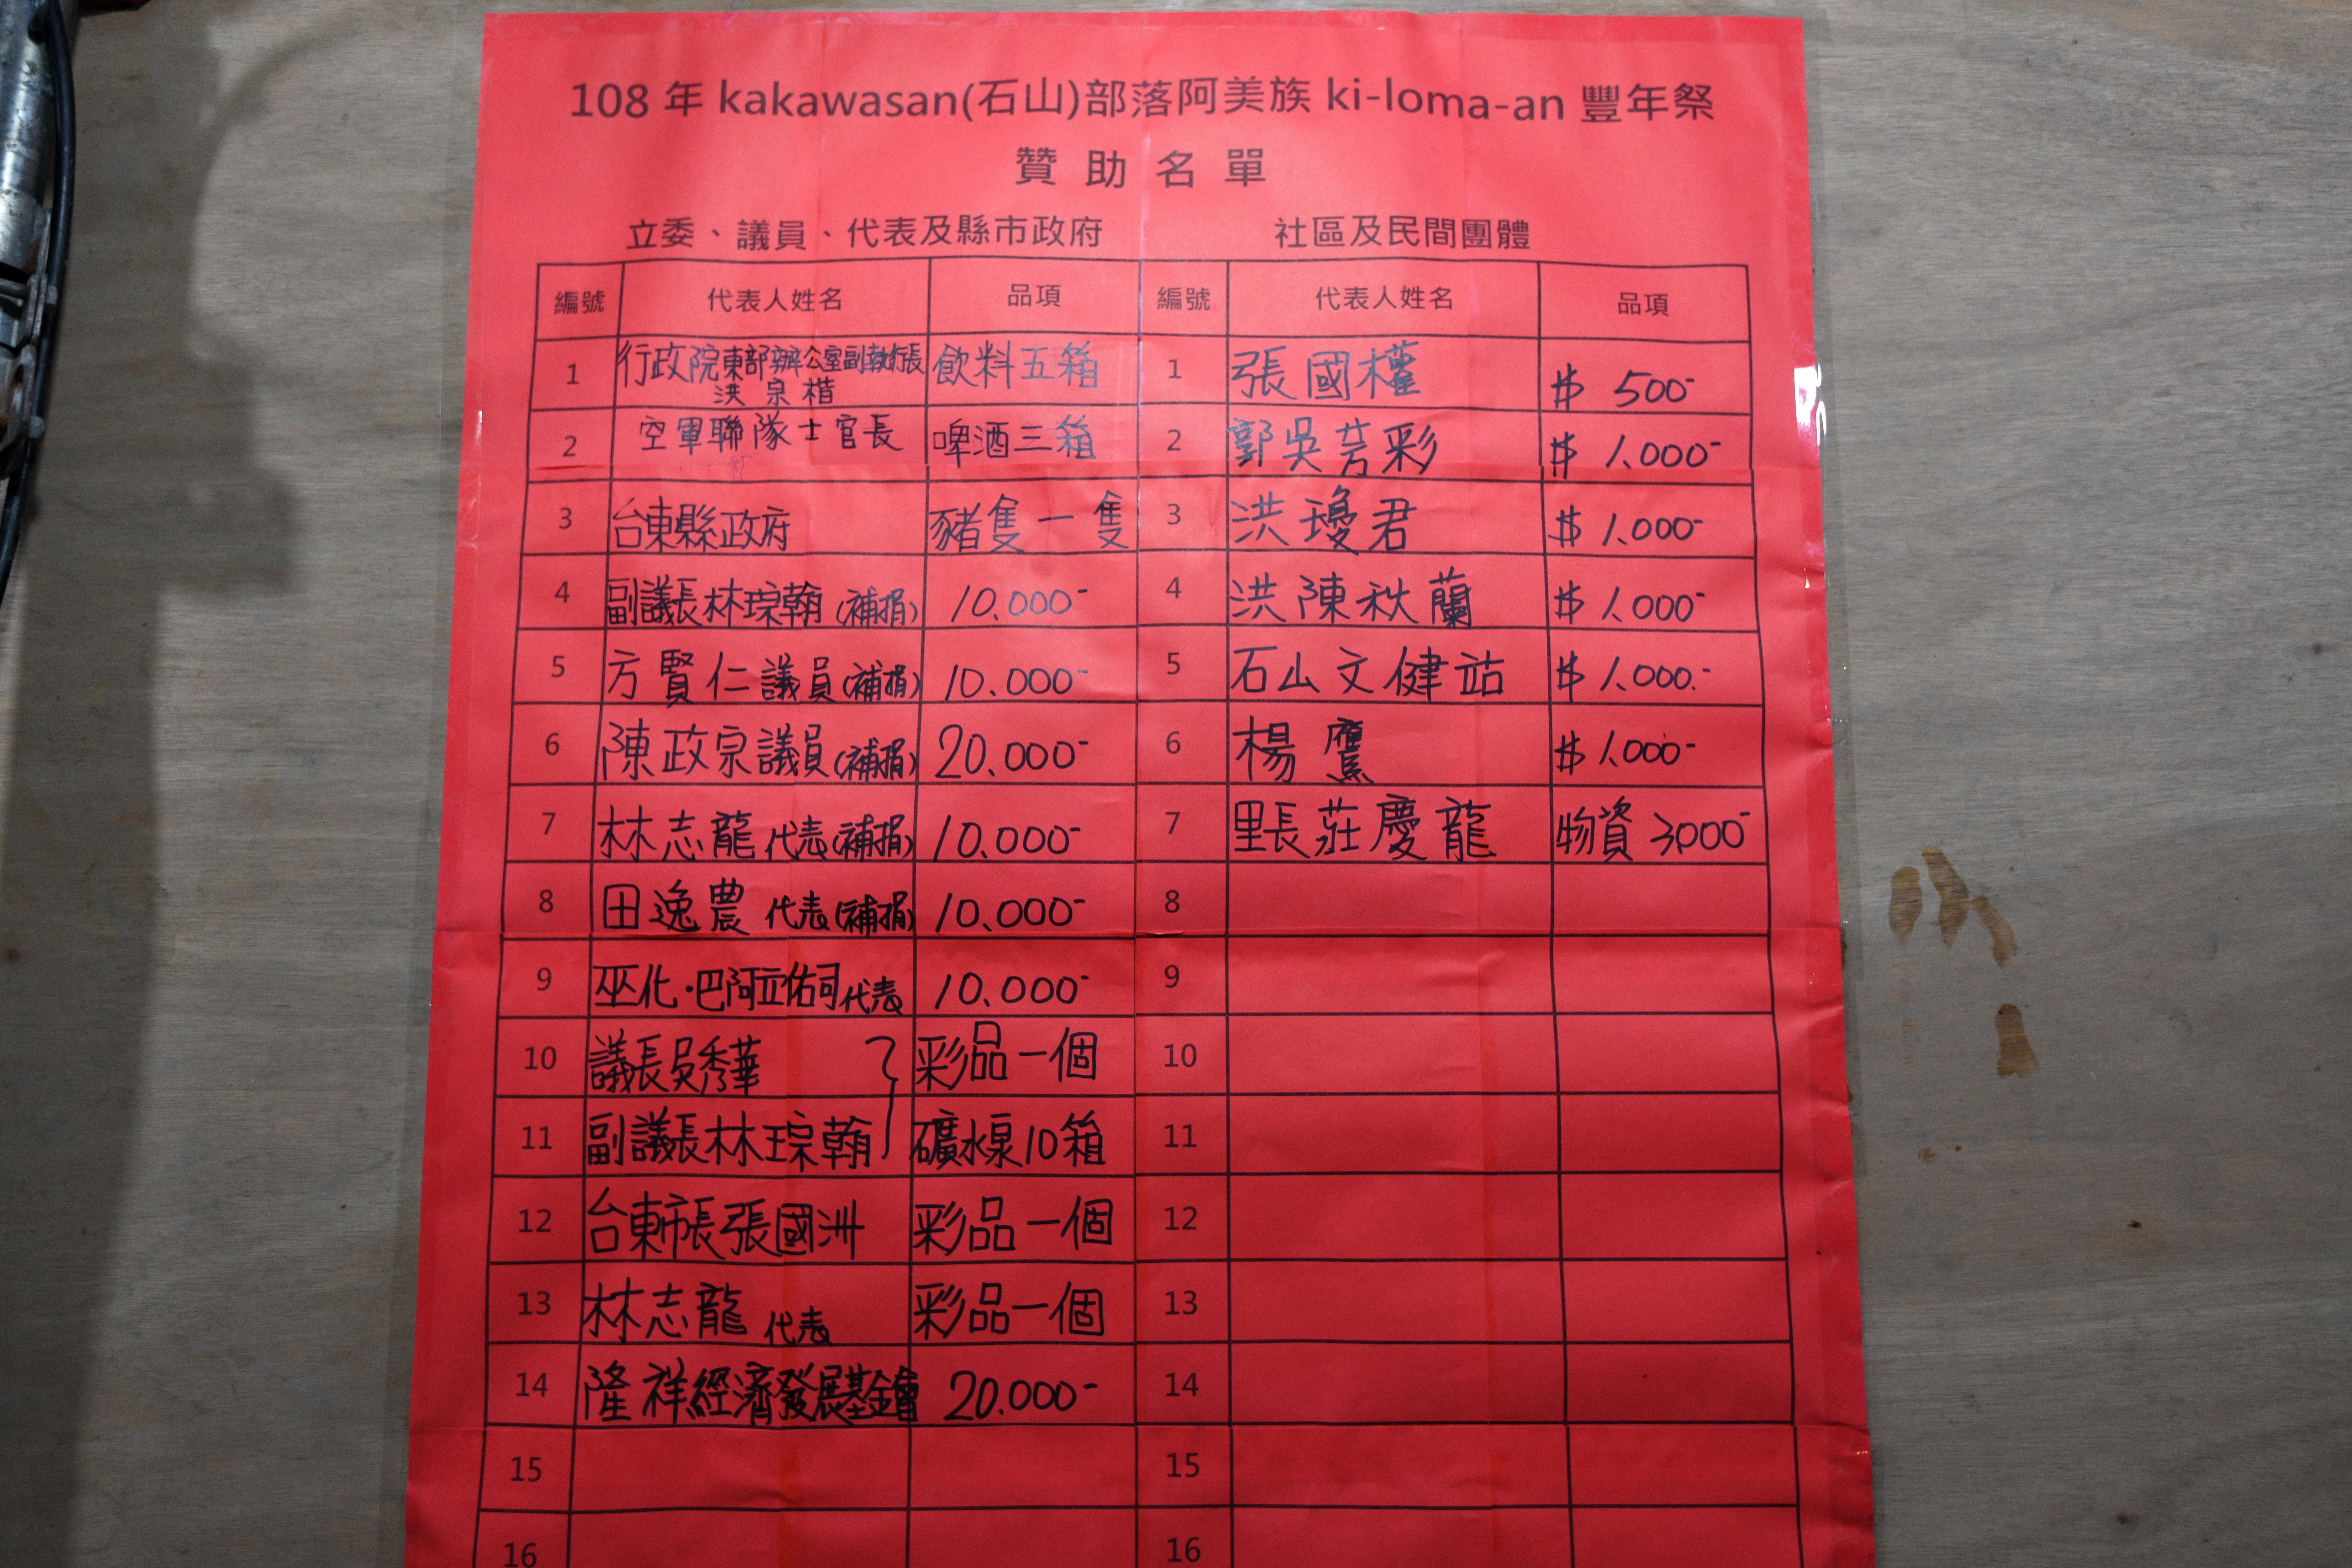 108 年 kakawasan(石山)部落阿美族 ki-loma-an 豐年祭
贊 助 名 單
立委、議員、代表及縣市政府 社區及民間團體
編號 代表人姓名 品項 編號 代表人姓名 品項
1 行政院東部辦公室副執行長洪泉楷 飲料五箱 1 張國權 $ 500-
2 空軍聯隊士官長 啤酒三箱 2 郭吳芳彩 $ 1.000-
3 台東縣政府 豬隻一隻 3 洪瓊君 $ 1.000-
4 副議長林琮翰(補捐) 10.000- 4 洪陳秋蘭 $ 1.000-
5 方賢仁議員(補捐) 10.000- 5 石山文健站 $ 1.000.-
6 陳政宗議員(補捐) 20.000- 6 楊鷹 $ 1.000-
7 林志龍代表(補捐) 10.000- 7 里長莊慶龍 物資 3000-
8 田逸農代表(補捐) 10.000- 8
9 巫化·巴阿立佑司代表 10.000- 9
10 議長吳秀華 彩品一個 10
11 副議長林琮翰 礦水泉10箱 11
12 台東市長張國洲 彩品一個 12
13 林志龍代表 彩品一個 13
14 隆祥經濟發展基金會 20.000- 14
15 15
16 16